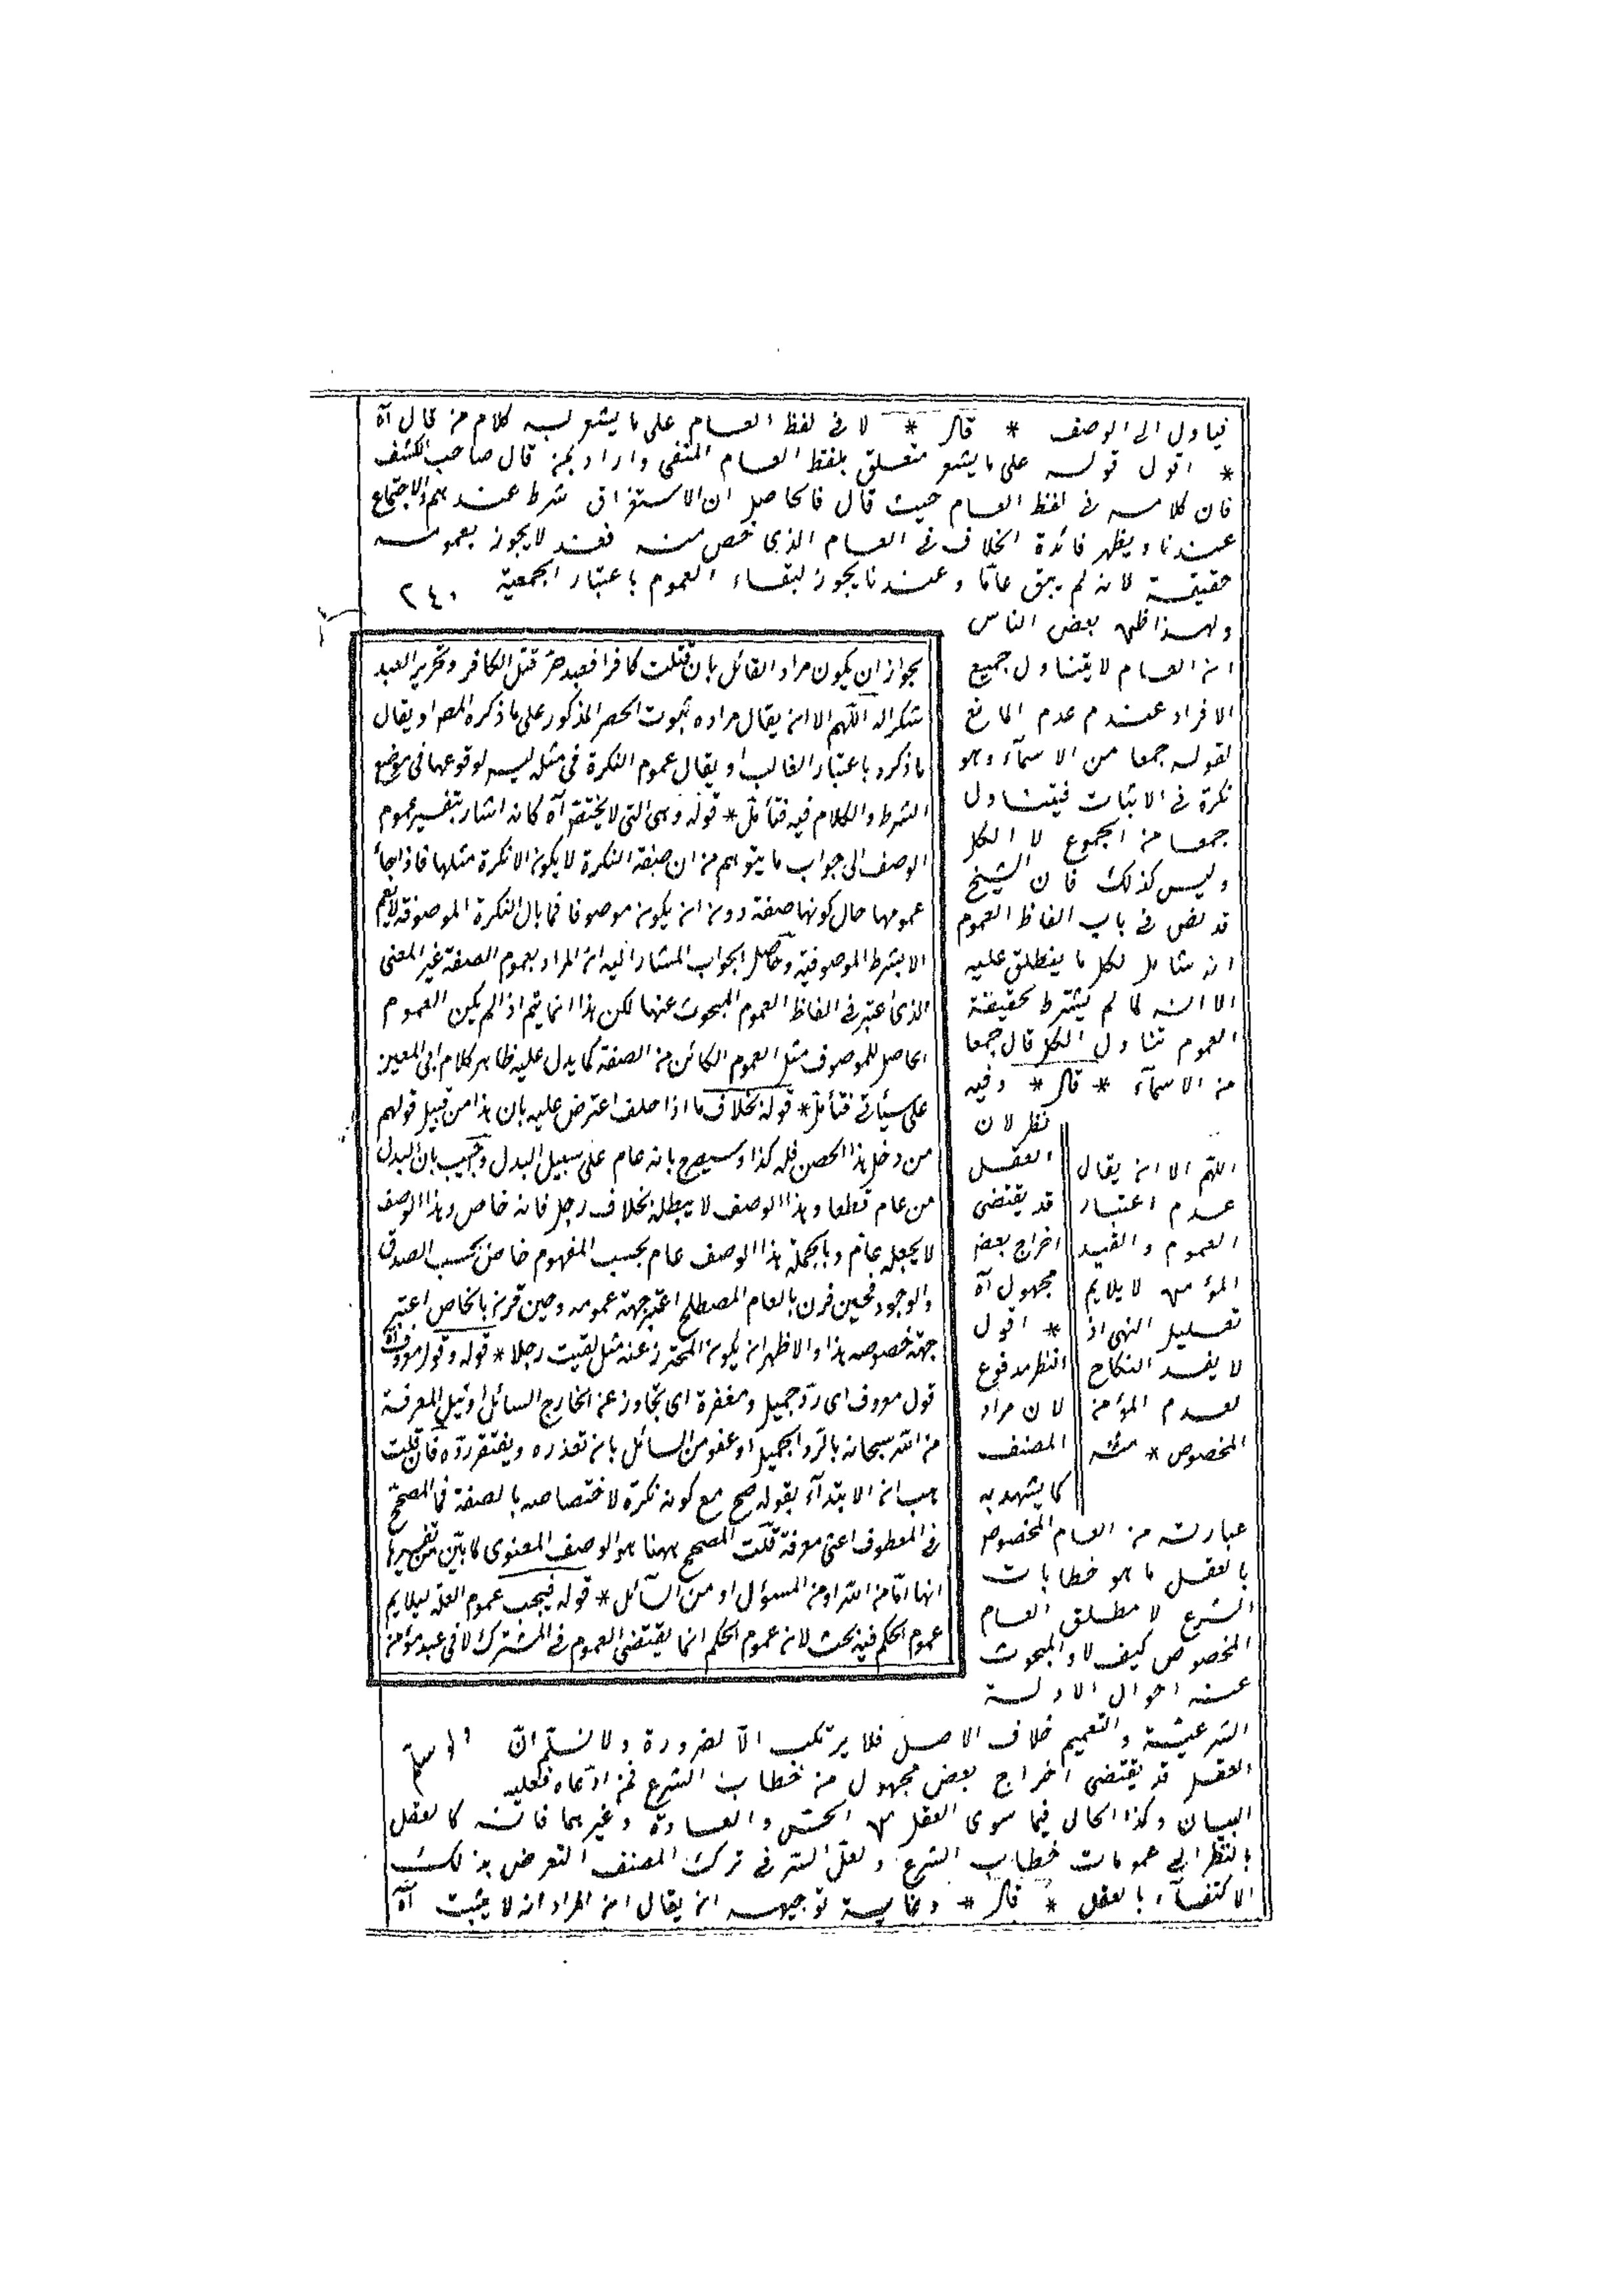 فيأول الى الوصف * قال * لا في لفظ العام على ما يشعر به كلام من قال آه
* اقول قوله على ما يشعر متعلق بلفظ العام المنفى واراد بمن قال صاحب الكشف
فان كلامه في لفظ العام حيث قال فالحاصل ان الاستغراق شرط عندهم والاجتماع
عندنا ويظهر فائدة الخلاف في العام الذي خص منه فعند لا يجوز بعمومه
حقيقة لانه لم يبق عامّا وعندنا يجوز لبقاء العموم باعتبار الجمعية ٢٤٠
ولهذا ظن بعض الناس
ان العام لا يتناول جميع
الافراد عندم عدم المانع
لقوله جمعا من الاسمآء وهو
نكرة في الاثبات فيتناول
جمعا من الجموع لا الكل
وليس كذلك فان الشيخ
قد نص في باب الفاظ العموم
انه شامل لكل ما ينطلق عليه
الا انه لما لم يشترط لحقيقة
العموم تناول الكل قال جمعا
من الاسمآء * قال * وفيه
نظر لان
العقل
قد يقتضى
اخراج بعض
مجهول آه
* اقول
النظر مدفوع
لان مراد
المصنف
كما يشهد به
اللهم الا ان يقال
عدم اعتبار
العموم والقيد
المؤمن لا يلايم
تعليل النهى اذ
لا يفسد النكاح
لعدم المؤمن
المخصوص * منه
عبارته من العام المخصوص
بالعقل ما هو خطابات
الشرع لا مطلق العام
المخصوص كيف لا والمبحوث
عنه احوال الادلة
الشرعيّة والتعميم خلاف الاصل فلا يرتكب الّا لضرورة ولا نسلّم انّ
العقل قد يقتضى اخراج بعض مجهول من خطاب الشرع فمن ادّعاه فعليه
البيان وكذا الحال فيما سوى العقل من الحسّ والعادة وغيرهما فانه كالعقل
بالنظر الى عمومات خطاب الشرع ولعلّ السّر في ترك المصنف التعرض بذلك
الاكتفآء بالعقل * قال * وغاية توجيهه ان يقال ان المراد انه لا يثبت آه
بجواز ان يكون مراد القائل بان قتلت كافرا فعبد حرّ قتل الكافر وتحرير العبد
شكرا له اللّهم الا ان يقال مراده ثبوت الحصر المذكور على ما ذكره المص او يقال
ما ذكره باعتبار الغالب او يقال عموم النكرة في مثله ليس لوقوعها في موضع
الشرط والكلام فيه فتأمّل * قوله وهى التى لا يختصّ آه كانه اشار بتفسير عموم
الوصف الى جواب ما يتوهم من ان صفة النكرة لا يكون الا نكرة مثلها فاذا جاز
عمومها حال كونها صفة دون ان يكون موصوفا فما بال النكرة الموصوفة لا تعم
الا بشرط الموصوفية وحاصل الجواب المشار اليه ان المراد بعموم الصفة غير المعنى
الذى اعتبر في الفاظ العموم المبحوث عنها لكن هذا انما يتم اذا لم يكن العموم
الحاصل للموصوف مثل العموم الكائن من الصفة كما يدل عليه ظاهر كلام ابى المعين
على سيأتى فتأمّل * قوله بخلاف ما اذا حلف اعترض عليه بان هذا من قبيل قولهم
من دخل هذا الحصن فله كذا وسيصرح بانه عام على سبيل البدل واجيب بان البدل
من عام قطعا وهذا الوصف لا يبطله بخلاف رجل فانه خاص وهذا الوصف
لا يجعله عامّ وبالجملة هذا الوصف عام بحسب المفهوم خاصّ بحسب الصدق
والوجود فحين قرن بالعام المصطلح اعتبر جهة عمومه وحين قرن بالخاص اعتبر
جهة خصوصه هذا والاظهر ان يكون المحترز عنه مثل لقيت رجلا * قوله وقول معروف آه
قول معروف اى ردّ جميل ومغفرة اى تجاوز عن الحارج السائل او نيل المعرفة
من الله سبحانه بالرّد الجميل او عفو من السائل بان تعذره ويغتفر ردّه فان قلت
هب ان الابتدآء بقوله صح مع كونه نكرة لاختصاصه بالصفة فما المصحّح
في المعطوف اعنى معرفة قلت المصحح ههنا هو الوصف المعنوى كما بيّن من تفسيرها
انها امّا من الله او من المسؤل او من السآئل * قوله فيجب عموم العلة ليلايم
عموم الحكم فيه بحث لان عموم الحكم انما يقتضى العموم في المشترك لا في عبد مؤمن